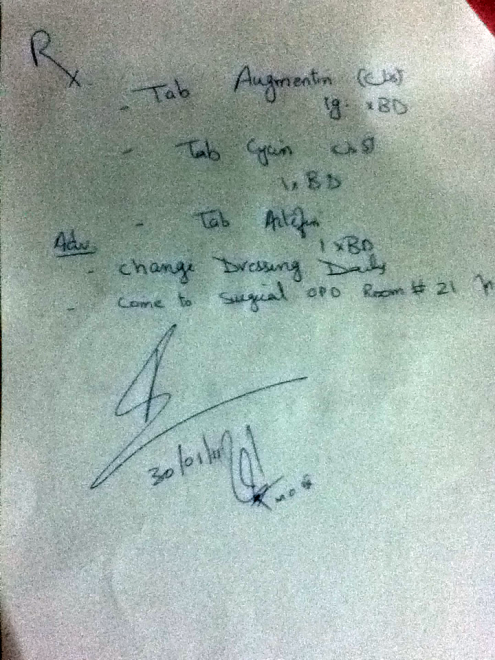 Rx
- Tab Augmentin
1g. x BD
- Tab Cycin
1 x BD
- Tab Artifen
1 x BD
Adv.
- change Dressing Daily
- Come to Surgical OPD Room # 21
30/01/11